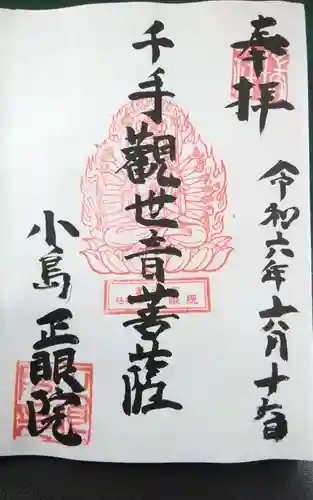 奉拝
令和六年六月十五日
千手觀世音菩薩
小島 正眼院